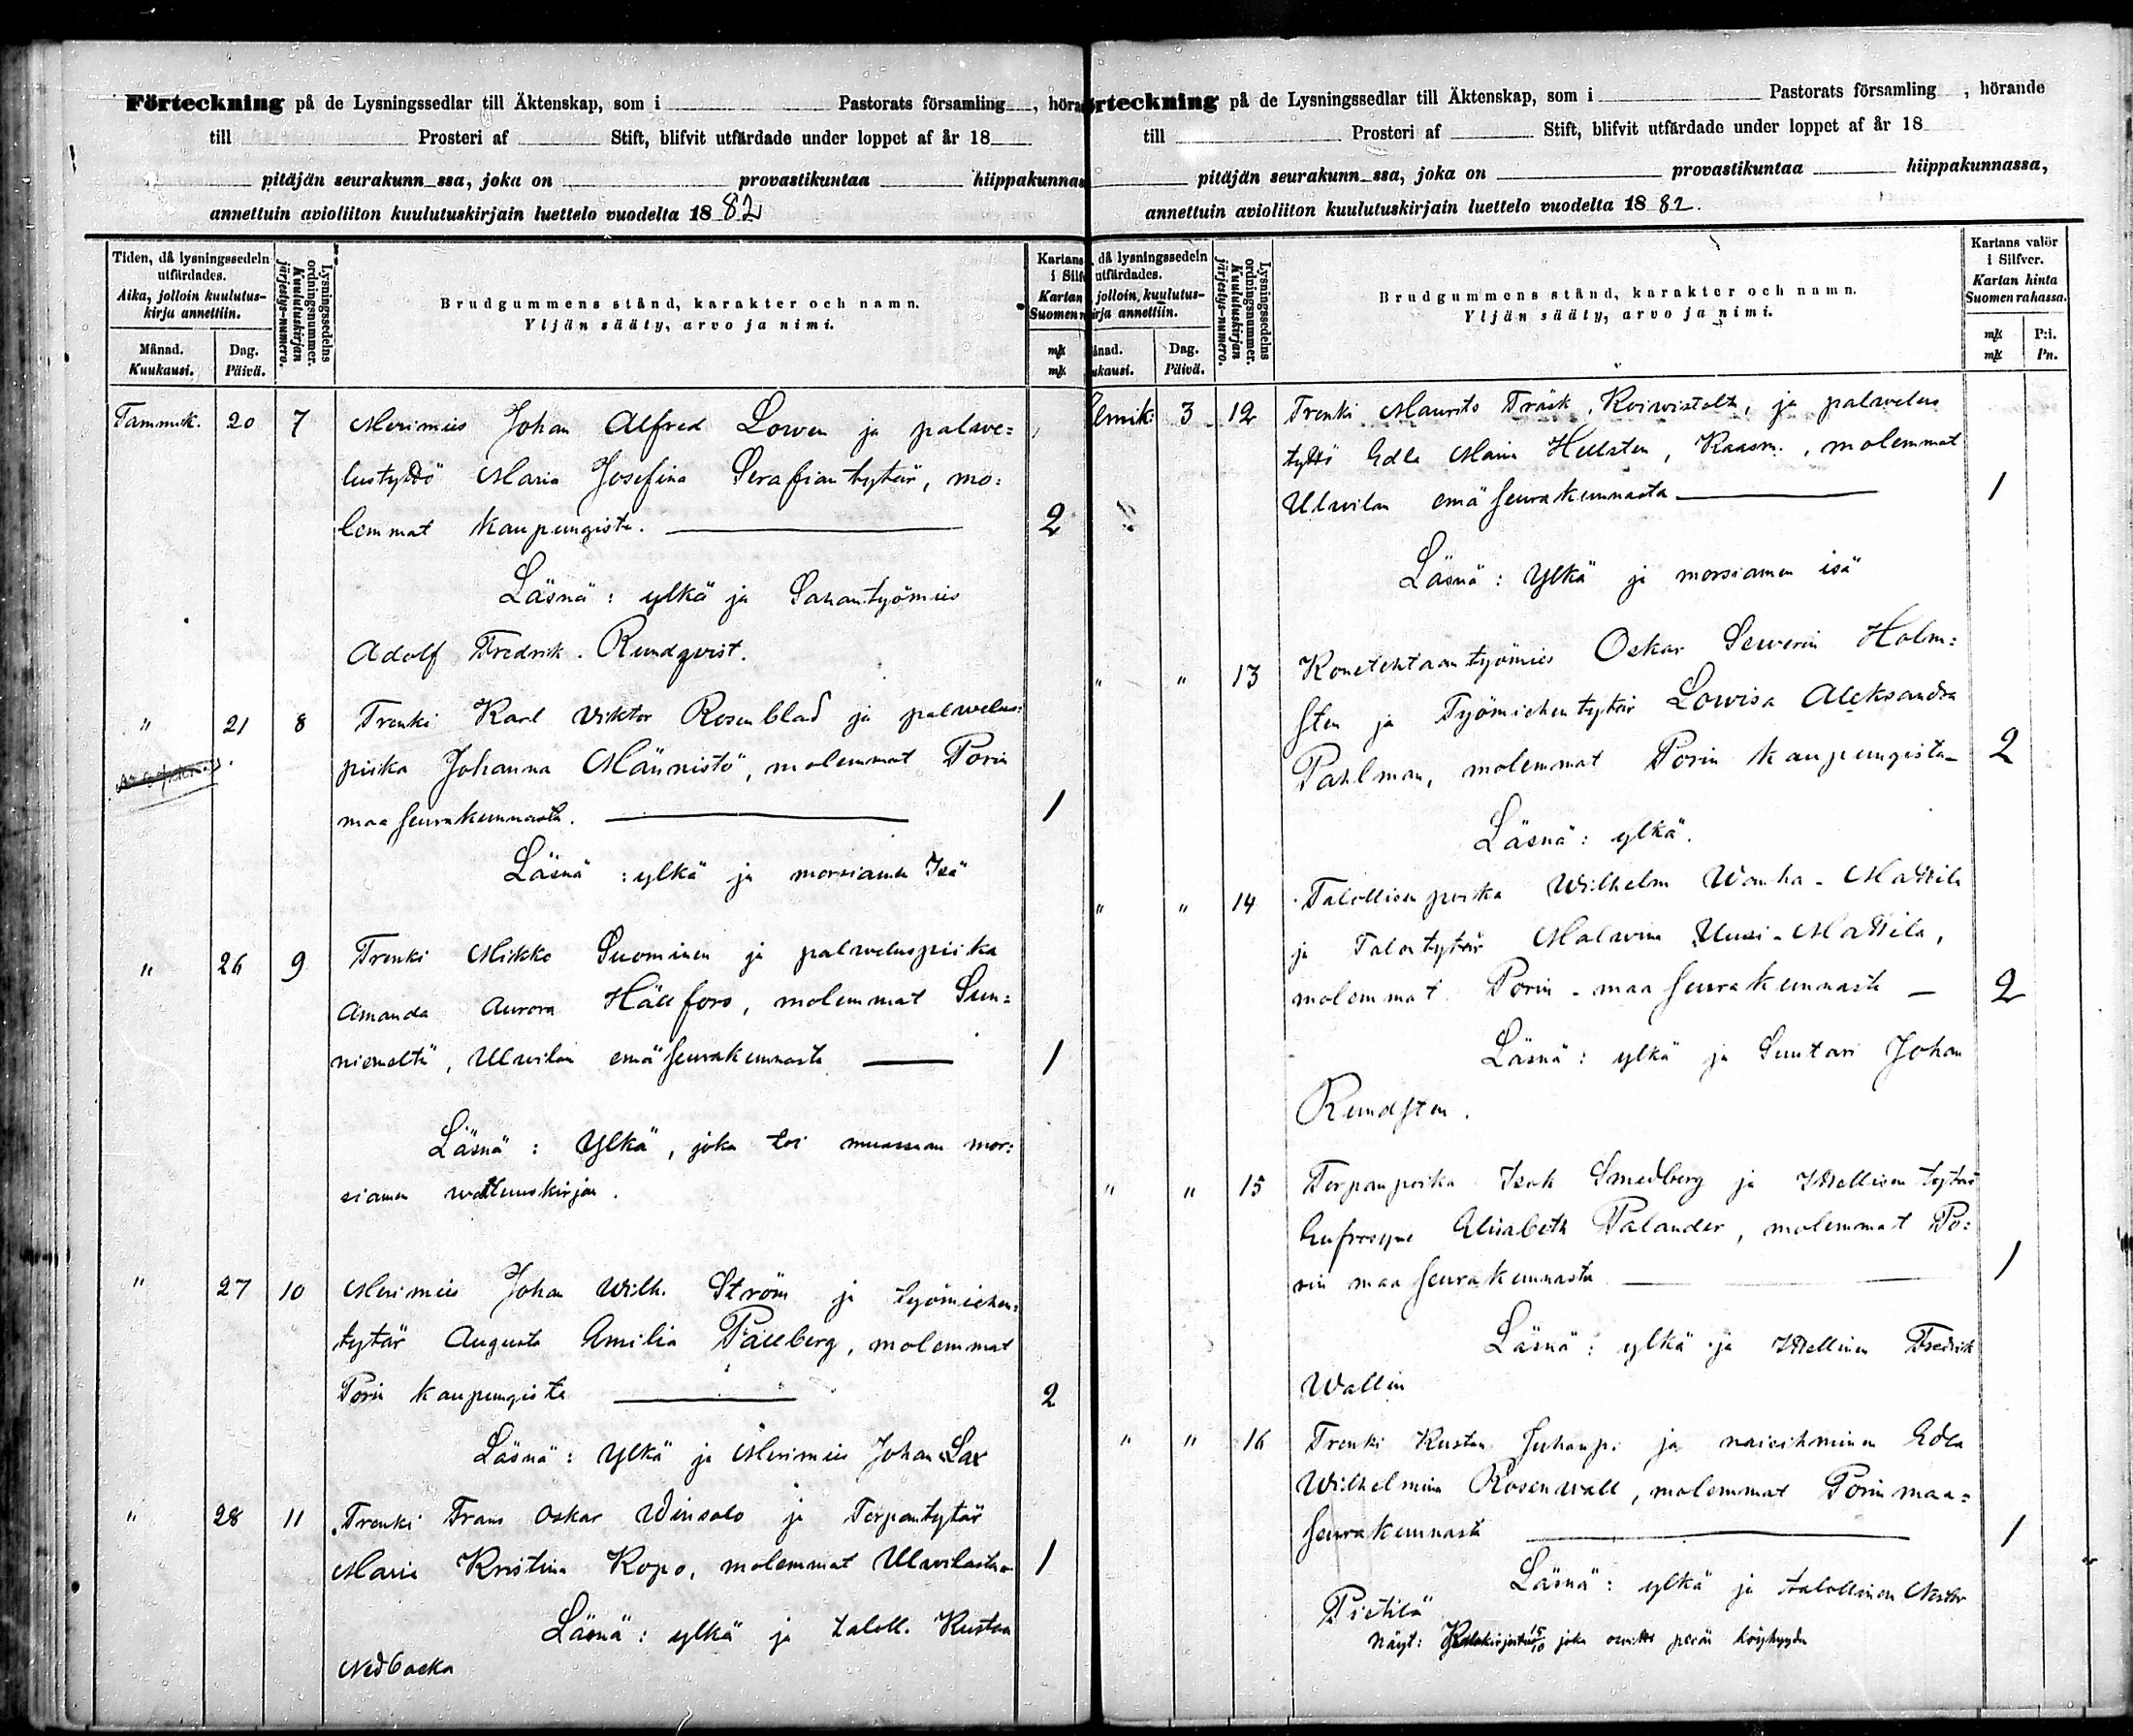 Förteckning på de Lysningssedlar till Äktenskap, som i Pastorats församling , höra
till Prosteri af Stift, blifvit utfärdade under loppet af år 18
pitäjän seurakunn ssa, joka on provastikuntaa hiippakunnas
annettuin avioliiton kuulutuskirjain luettelo vuodelta 1882
Tiden, då lysningssedeln
utfärdades.
Aika, jolloin kuulutus-
kirja annettiin.
Månad.
Kuukausi.
Dag.
Päivä.
Lysningssedelns
ordningsnummer.
Kuulutuskirjan
järjestys-numero.
Brudgummens stånd, karakter och namn.
Yljän sääty, arvo ja nimi.
Kartans
i Silf
Kartan
Suomen r
mk
mk
Tammik. 20 7 Merimies Johan Alfred Lowen ja palwe=
lustyttö Maria Josefina Serafiantytär, mo=
lemmat kaupungista. 2
Läsnä: ylkä ja Sahantyömies
Adolf Fredrik Rundqvist.
" 21 8 Trenki Karl Viktor Rosenblad ja palwelus=
piika Johanna Männistö, molemmat Porin
maa seurakunnasta. 1
Läsnä: ylkä ja morsiamen Isä
" 26 9 Trenki Mikko Suominen ja palweluspiika
Amanda Aurora Hällfors, molemmat Sun=
niemeltä, Ulwilan emäseurakunnasta 1
Läsnä: Ylkä, joka toi muassaan mor=
siamen waltuuskirjan.
" 27 10 Merimies Johan Wilh. Ström ja työmiehen=
tytär Augusta Emilia Pällberg, molemmat
Porin kaupungista 2
Läsnä: Ylkä ja Merimies Johan Lax
" 28 11 Trenki Frans Oskar Winsalo ja Torpantytär
Maria Kristina Kopo, molemmat Ulwilasta 1
Läsnä: ylkä ja taloll. Kustaa
Nedbacka
örteckning på de Lysningssedlar till Äktenskap, som i Pastorats församling , hörande
till Prosteri af Stift, blifvit utfärdade under loppet af år 18
pitäjän seurakunn ssa, joka on provastikuntaa hiippakunnassa,
annettuin avioliiton kuulutuskirjain luettelo vuodelta 1882.
, då lysningssedeln
utfärdades.
jolloin kuulutus-
irja annettiin.
ånad.
ukausi.
Dag.
Päivä.
Lysningssedelns
ordningsnummer.
Kuulutuskirjan
järjestys-numero.
Brudgummens stånd, karakter och namn.
Yljän sääty, arvo ja nimi.
Kartans valör
i Silfver.
Kartan hinta
Suomen rahassa.
mk P:i.
mk Pn.
elmik: 3 12 Trenki Maurits Träsk, Koiwistolta, ja palwelus
tyttö Edla Maria Hellsten, Kaasm., molemmat
Ulwilan emäseurakunnasta 1
Läsnä: Ylkä ja morsiamen isä
" " 13 Konetehtaantyömies Oskar Sewerin Holm=
sten ja Työmiehentytär Lowisa Aleksandra
Pahlman, molemmat Porin kaupungista 2
Läsnä: ylkä.
" " 14 Talollisen poika Wilhelm Wanha-Mattila
ja Talontytär Malwina Uusi-Mattila,
molemmat Porin-maa seurakunnasta 2
Läsnä: ylkä ja Suutari Johan
Rundsten.
" " 15 Torpanpoika Isak Smedberg ja Itsellisen tytär
Eufrosyne Elisabeth Palander, molemmat Po=
rin maa seurakunnasta 1
Läsnä: ylkä ja Itsellinen Fredrik
Wallin
" " 16 Trenki Kustaa Juhanp. ja naisihminen Edla
Wilhelmina Rosenwall, molemmat Porin maa=
seurakunnasta 1
Läsnä: ylkä ja talollinen
Pietilä
Näyt: joka perän köyhyyden